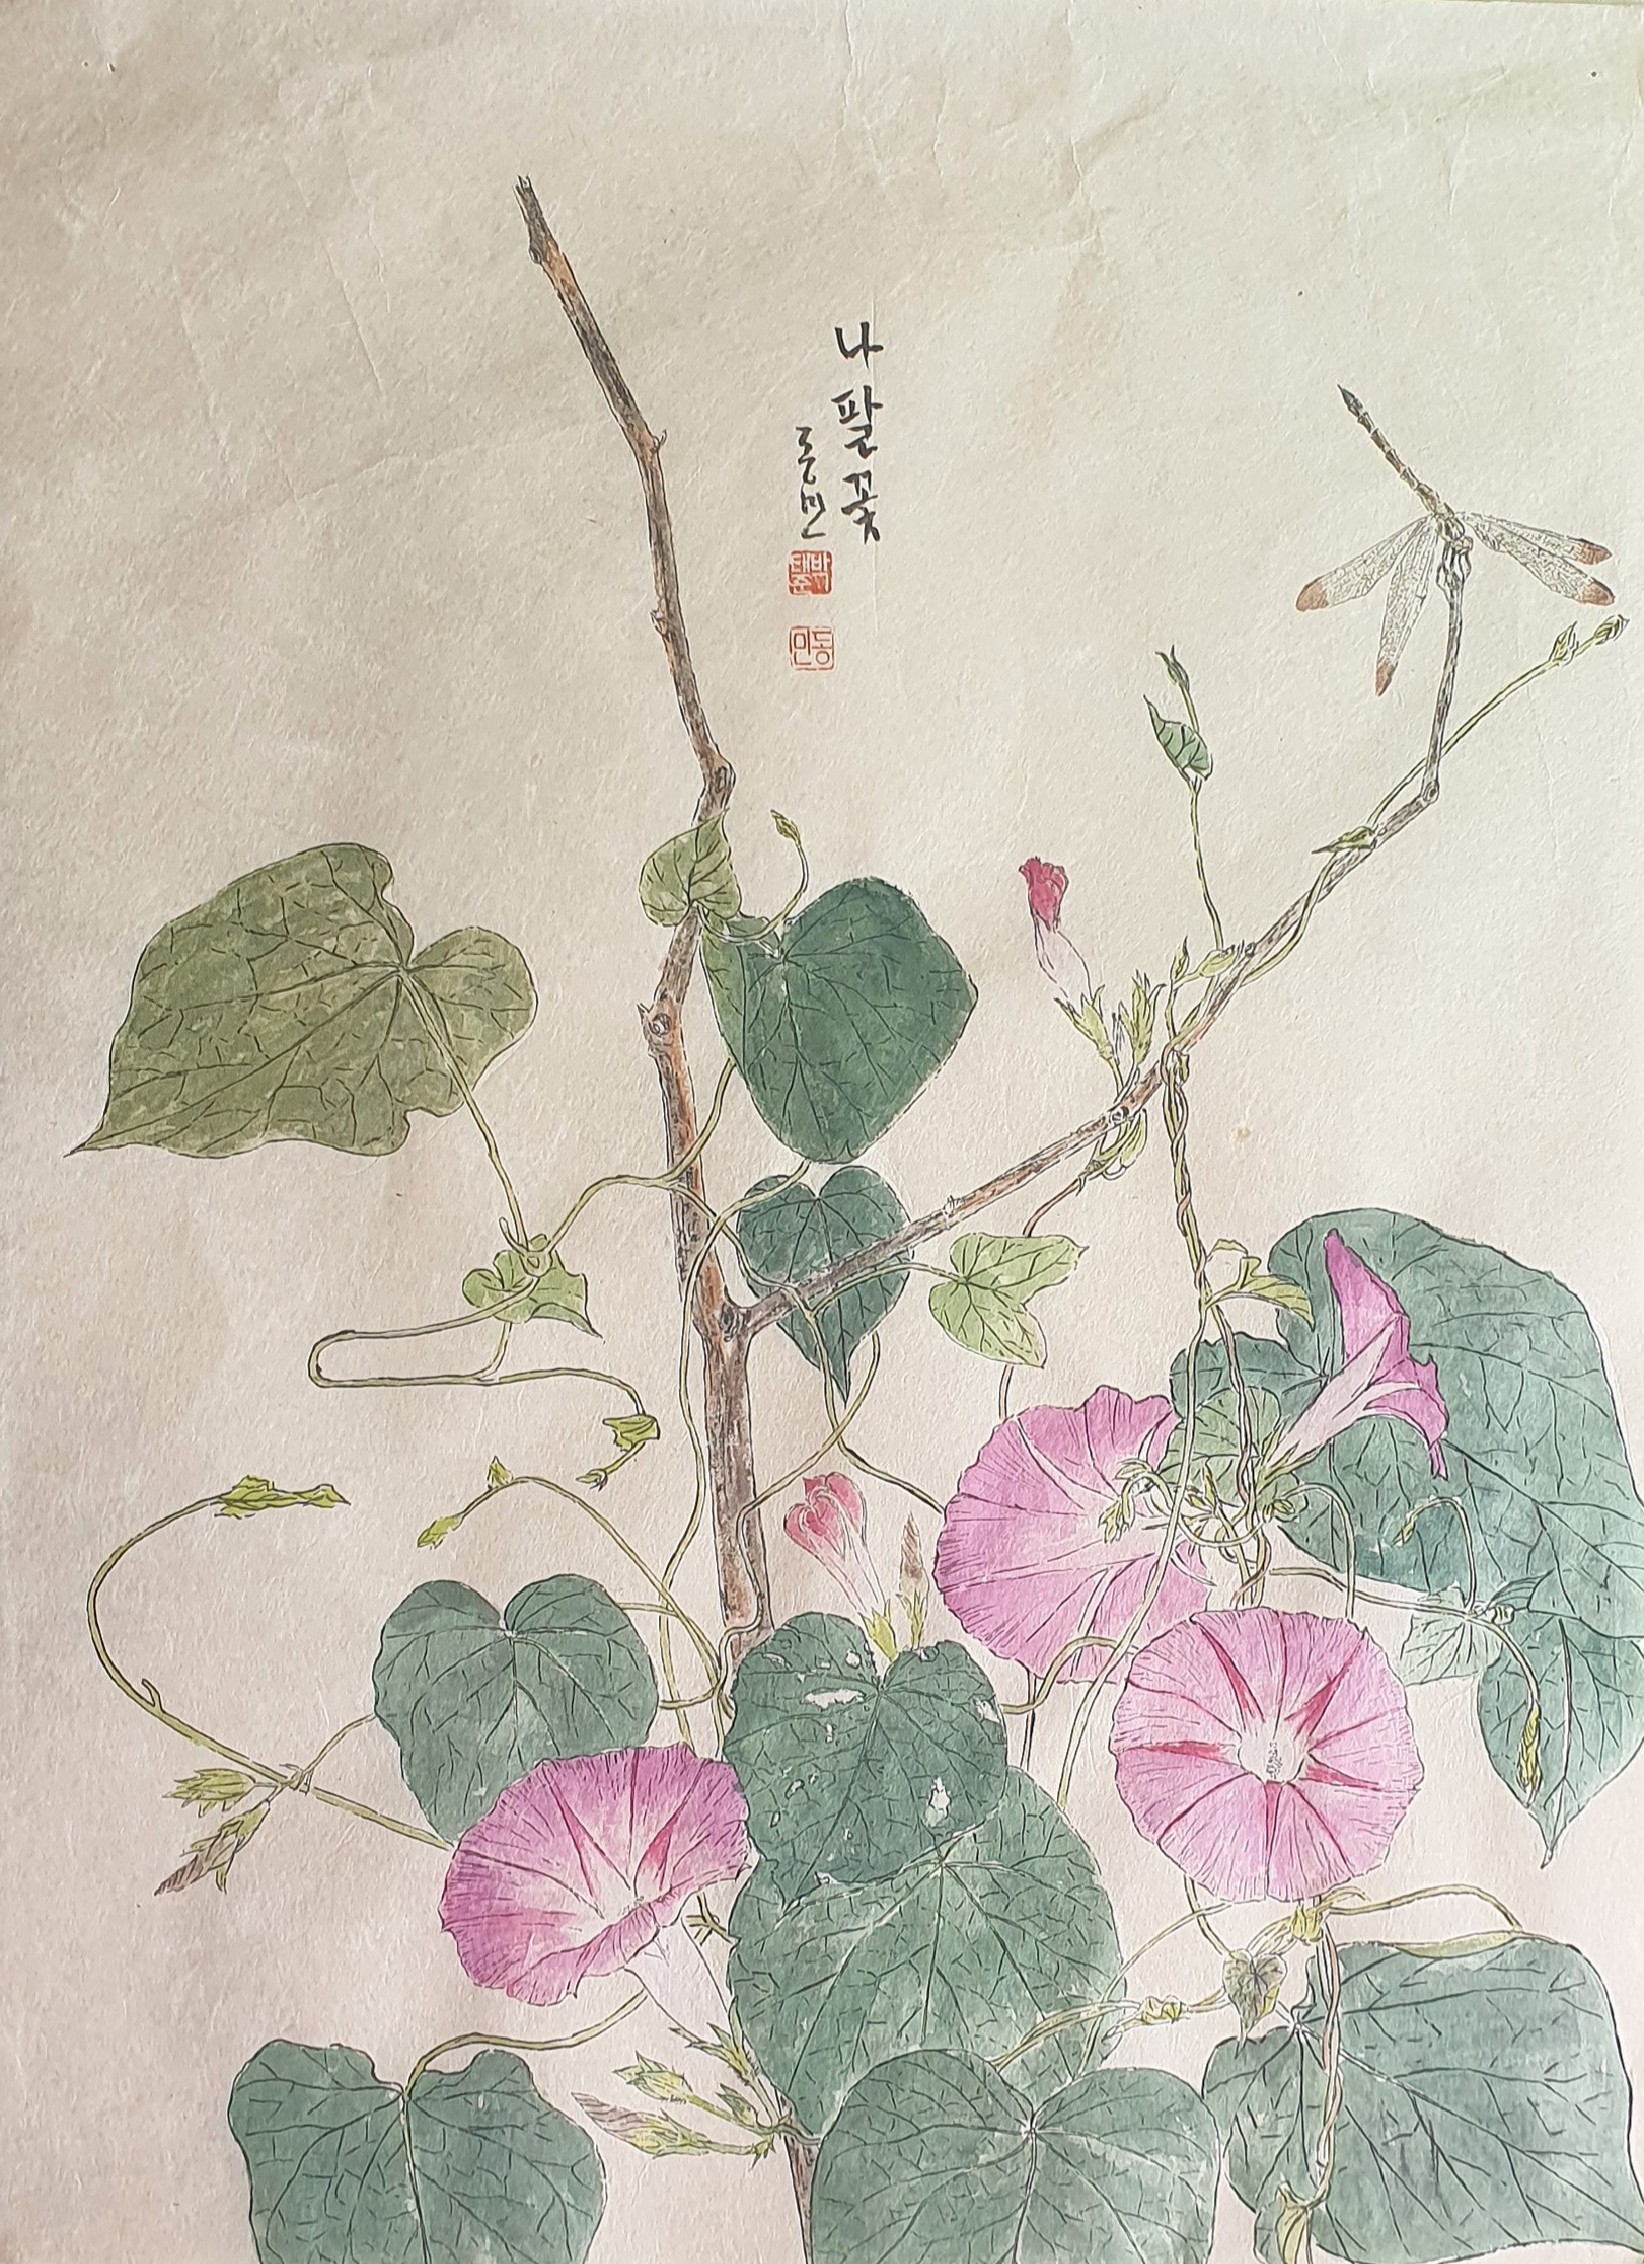 나팔꽃
동민
박태준
동민